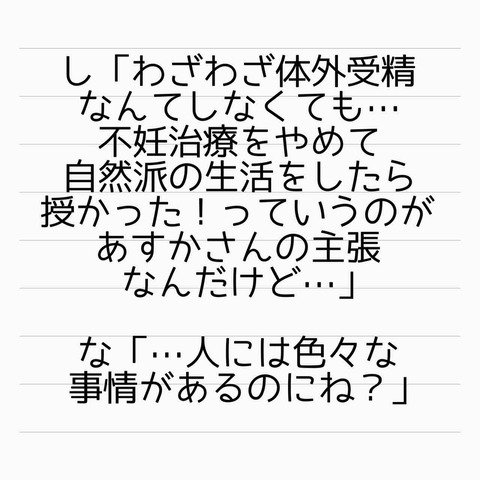 し「わざわざ体外受精
なんてしなくても…
不妊治療をやめて
自然派の生活をしたら
授かった！っていうのが
あすかさんの主張
なんだけど…」
な「…人には色々な
事情があるのにね？」